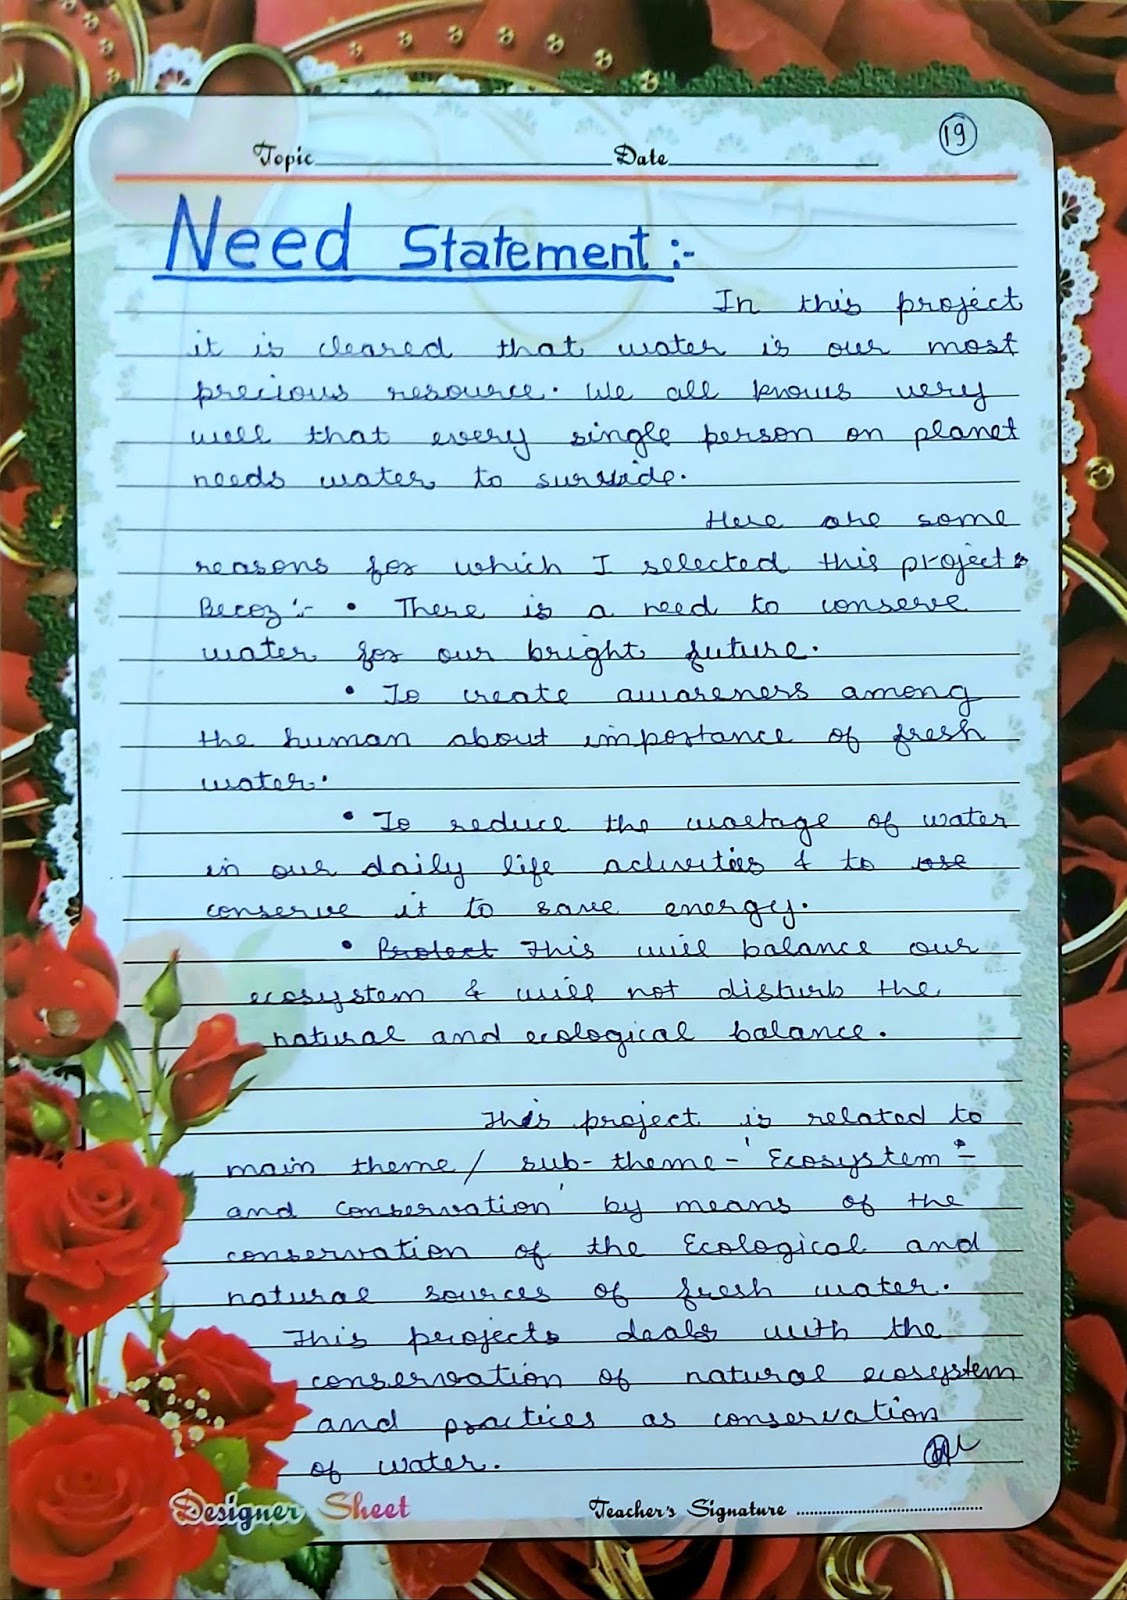 19
Topic Date
Need Statement :-
In this project
it is cleared that water is our most
precious resource. We all knows very
well that every single person on planet
needs water to survide.
Here are some
reasons for which I selected this project
Becoz :- • There is a need to conserve
water for our bright future.
• To create awareness among
the human about importance of fresh
water.
• To reduce the wastage of water
in our daily life activities & to use
conserve it to save energy.
• Protect This will balance our
ecosystem & will not disturb the
natural and ecological balance.
This project is related to
main theme / sub-theme - 'Ecosystem -
and conservation' by means of the
conservation of the Ecological and
natural sources of fresh water.
This projects deals with the
conservation of natural ecosystem
and practices as conservation
of water.
Designer Sheet Teacher's Signature